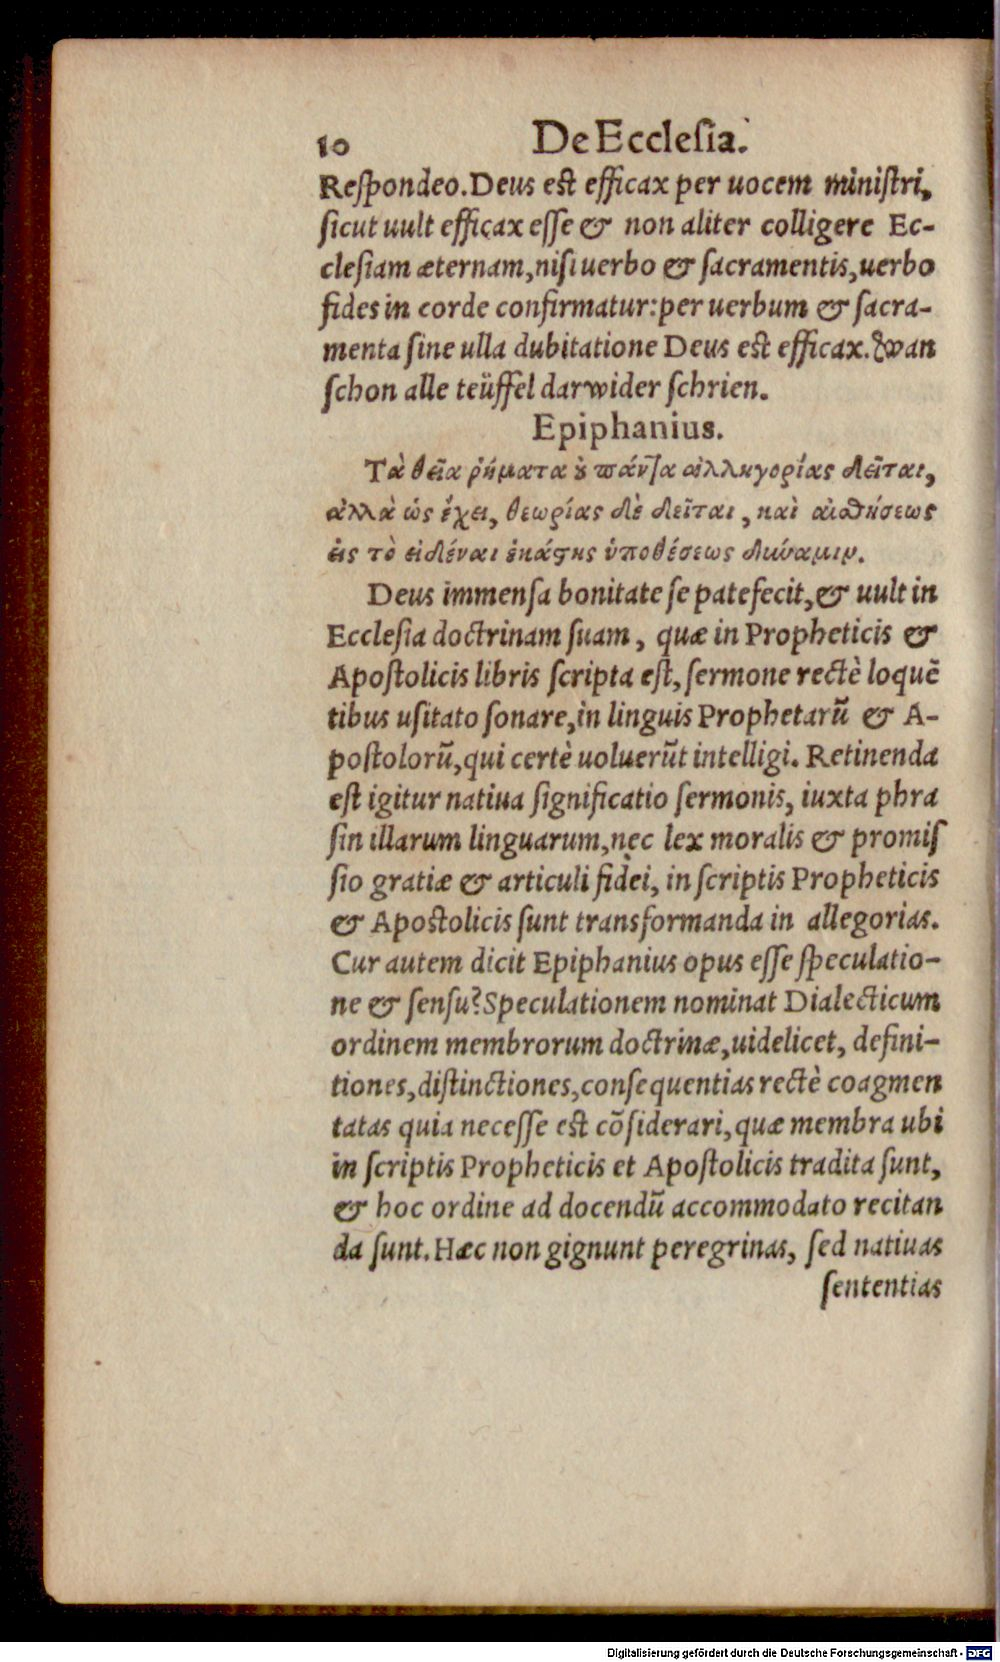 10 De Ecclesia.
Respondeo. Deus est efficax per uocem ministri,
sicut uult efficax esse & non aliter colligere Ec-
clesiam æternam, nisi uerbo & sacramentis, uerbo
fides in corde confirmatur: per uerbum & sacra-
menta sine ulla dubitatione Deus est efficax. wan
schon alle teüffel darwider schrien.
Epiphanius.
Τὰ θεῖα ῥήματα ȣ πάντα ἀλληγορίας δεῖται,
ἀλλὰ ὡς ἔχει, θεωρίας δὲ δεῖται, καὶ αἰσθήσεως
εἰς τὸ εἰδέναι ἑκάστης ὑποθέσεως δύναμιν.
Deus immensa bonitate se patefecit, & uult in
Ecclesia doctrinam suam, quæ in Propheticis &
Apostolicis libris scripta est, sermone rectè loquē
tibus usitato sonare, in linguis Prophetarū & A-
postolorū, qui certè uoluerūt intelligi. Retinenda
est igitur natiua significatio sermonis, iuxta phra
sin illarum linguarum, nec lex moralis & promis
sio gratiæ & articuli fidei, in scriptis Propheticis
& Apostolicis sunt transformanda in allegorias.
Cur autem dicit Epiphanius opus esse speculatio-
ne & sensu? Speculationem nominat Dialecticum
ordinem membrorum doctrinæ, uidelicet, defini-
tiones, distinctiones, consequentias rectè coagmen
tatas quia necesse est cōsiderari, quæ membra ubi
in scriptis Propheticis et Apostolicis tradita sunt,
& hoc ordine ad docendū accommodato recitan
da sunt. Hæc non gignunt peregrinas, sed natiuas
sententias
Digitalisierung gefördert durch die Deutsche Forschungsgemeinschaft - DFG